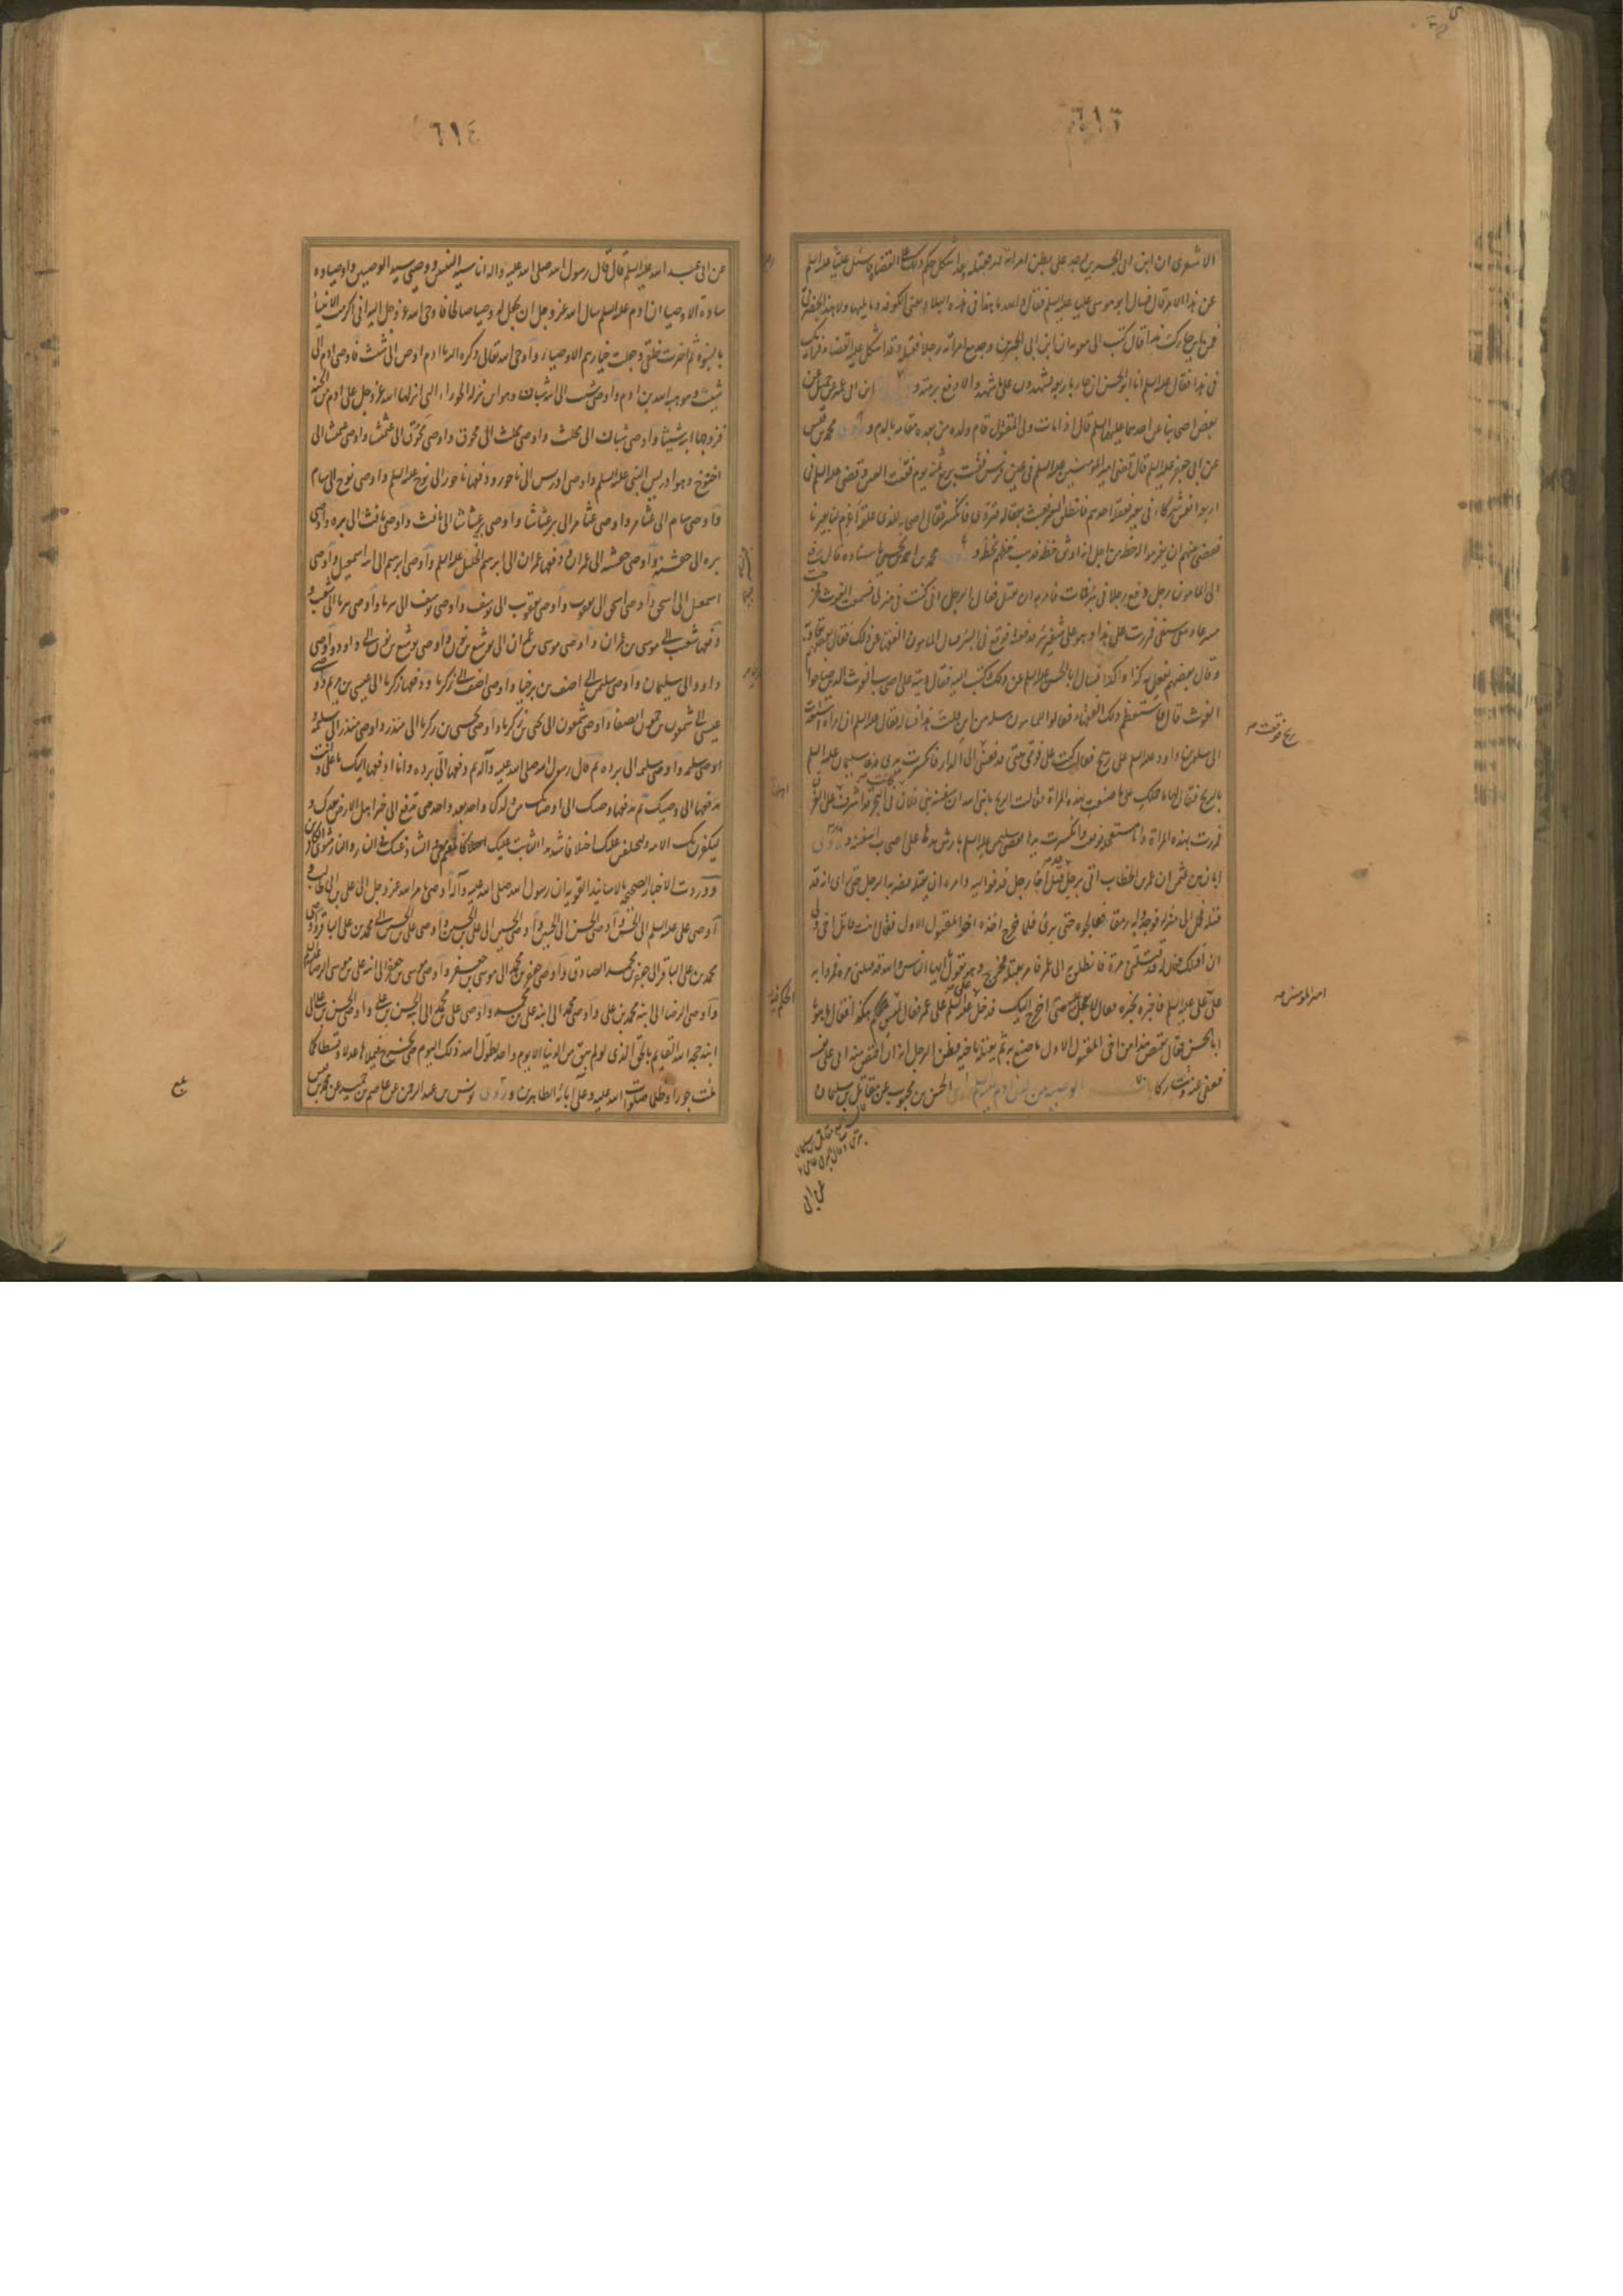 ٦١٣
الاشعری ان ابن ابی الجسرین وجد علی بطن امراته رجلا فقتله وقد اشکل حکم ذلک علی القضاة فسئل علیا علیه السلم
عن هذا الامر قال فسال ابو موسی علیا علیه السلم فقال والله ما هذا فی هذه البلاد یعنی الکوفة وما یلیها وما هذا بحضرتی
فمن این جاءک هذا قال کتب الی معویة ان ابن ابی الجسرین وجد مع امراته رجلا فقتله وقد اشکل علی القضاة فرأیک
فی هذا فقال علیه السلم انا ابو الحسن ان جاء باربعة یشهدون علی ما شهد والا دفع برمته و ابن ابی عمیر عن جمیل عن
بعض اصحابنا عن احدهما علیهما السلم قال اذا مات ولی المقتول قام ولده من بعده مقامه بالدم وروی محمد بن قیس
عن ابی جعفر علیه السلم قال قضی امیر المؤمنین علیه السلم فی عین فرس فقئت بربع ثمنه یوم فقئت العین وقضی علیه السلم فی
اربعة انفس شرکاء فی بعیر فعقله احدهم فانطلق البعیر فعبث بعقاله فتردی فانکسر فقال اصحابه للذی عقله اغرم لنا بعیرنا
فقضی بینهم ان یغرموا له حظه من اجل انه اوثق حظه فذهب حظهم بحظه وروی محمد بن احمد بن یحیی باسناده قال رفع
الی المامون رجل دفع رجلا فی بئر فمات فامر به ان یقتل فقال الرجل انی کنت فی منزلی فسمعت الغوث فخرجت
مسرعا ومعی سیفی فمررت علی هذا وهو علی شفیر بئر فدفعته فوقع فی البئر فسال المامون الفقهاء عن ذلک فقال بعضهم یقاد به
وقال بعضهم یفعل به کذا وکذا فسال ابا الحسن علیه السلم عن ذلک وکتب الیه فقال دیته علی اصحاب الغوث الذین صاحوا
الغوث قال فاستعظم ذلک الفقهاء فقالوا للمامون سله من این قلت هذا فساله فقال علیه السلم ان امراة استعدت
الی سلیمن بن داود علیه السلم علی ریح فقالت کنت علی فوق بیتی فدفعتنی الی الدار فانکسرت یدی فدعا سلیمان علیه السلم
بالریح فقال لها ما حملک علی ما صنعت بهذه المراة فقالت الریح یا نبی الله ان سفینة بنی فلان کانت فی البحر قد اشرف علی الغرق
فمررت بهذه المراة وانا مستعجلة فوقعت وانکسرت یدها فقضی سلیمن علیه السلم بارش یدها علی اصحاب السفینة وروی
ابان بن عثمن ان عمر بن الخطاب اتی برجل قد قتل اخا رجل فدفعه الیه وامره ان یقتله فضربه الرجل حتی رای انه قد
قتله فحمل الی منزله فوجدوا به رمقا فعالجوه حتی برئ فلما خرج اخذه اخو المقتول الاول فقال انت قاتل اخی ولی
ان اقتلک فقال له قد قتلتنی مرة فانطلق به الی عمر فامر بقتله فخرج وهو یقول یا ایها الناس والله قد قتلنی مرة فمروا به
علی علی علیه السلم فاخبره بخبره فقال لا تعجل علیه حتی اخرج الیک فدخل علی علیه السلم علی عمر فقال لیس الحکم هکذا فقال ما هو یا
ابا الحسن فقال یقتص هذا من اخی المقتول الاول ما صنع به ثم یقتله باخیه فظن الرجل انه ان اقتص منه اتی علی نفسه
فعفی عنه وتتارکا باب الوصیة من لدن ادم علیه السلم روی الحسن بن محبوب عن مقاتل بن سلیمان
ریح فوقعت م
امیر المؤمنین مه
٦١٤
عن ابی عبد الله علیه السلم قال قال رسول الله صلی الله علیه واله انا سید النبیین ووصیی سید الوصیین واوصیاوه
سادة الاوصیا ان ادم علیه السلم سال الله عز وجل ان یجعل له وصیا صالحا فاوحی الله عز وجل الیه انی اکرمت الانبیاء
بالنبوة ثم اخترت خلقی وجعلت خیارهم الاوصیاء واوحی الله تعالی ذکره الیه یا ادم اوص الی شیث فاوصی ادم الی
شیث وهو هبة الله بن ادم واوصی شیث الی ابنه شبان وهو ابن نزلة الحوراء التی انزلها الله عز وجل علی ادم من الجنة
فزوجها ابنه شیثا واوصی شبان الی محلث واوصی محلث الی محوق واوصی محوق الی عمیشا واوصی عمیشا الی
اخنوخ وهو ادریس النبی علیه السلم واوصی ادریس الی ناحور ودفعها ناحور الی نوح علیه السلم واوصی نوح الی سام
واوصی سام الی عثامر واوصی عثامر الی برعیثاشا واوصی برعیثاشا الی یافث واوصی یافث الی بره واوصی
بره الی جفسیه واوصی جفسیه الی عمران ودفعها عمران الی ابرهیم الخلیل علیه السلم واوصی ابرهیم الی ابنه اسمعیل واوصی
اسمعیل الی اسحق واوصی اسحق الی یعقوب واوصی یعقوب الی یوسف واوصی یوسف الی بثریا واوصی بثریا الی شعیب و
دفعها شعیب الی موسی بن عمران واوصی موسی بن عمران الی یوشع بن نون واوصی یوشع بن نون الی داود واوصی
داود الی سلیمان واوصی سلیمن الی اصف بن برخیا واوصی اصف الی زکریا ودفعها زکریا الی عیسی بن مریم واوصی
عیسی الی شمعون بن حمون الصفا واوصی شمعون الی یحیی بن زکریا واوصی یحیی بن زکریا الی منذر واوصی منذر الی سلیمة و
اوصی سلیمه واوصی سلیمه الی برده ثم قال رسول الله صلی الله علیه وآله ثم دفعها الی برده وانا ادفعها الیک یا علی وانت
تدفعها الی وصیک ثم یدفعها وصیک الی اوصیائک من ولدک واحد بعد واحد حتی تدفع الی خیر اهل الارض بعدک و
لیکفرن بک الامة ولیختلفن علیک اختلافا شدیدا الثابت علیک کالمقیم معی والشاذ عنک فی النار والنار مثوی الکافرین
ووردت الاخبار الصحیحه بالاسانید القویه ان رسول الله صلی الله علیه وآله اوصی بامر الله عز وجل الی علی بن ابی طالب و
اوصی علی علیه السلم الی الحسن واوصی الحسن الی الحسین واوصی الحسین الی علی بن الحسین واوصی علی بن الحسین الی محمد بن علی الباقر واوصی
محمد بن علی الباقر الی جعفر بن محمد الصادق واوصی جعفر بن محمد الی موسی بن جعفر واوصی موسی بن جعفر الی ابنه علی بن موسی الرضا علیه السلم
واوصی الرضا الی ابنه محمد بن علی واوصی محمد الی ابنه علی بن محمد واوصی علی بن محمد الی ابنه الحسن بن علی واوصی الحسن بن علی الی
ابنه حجة الله القایم بالحق الذی لو لم یبق من الدنیا الا یوم واحد لطول الله ذلک الیوم حتی یخرج فیملاها عدلا وقسطا کما
ملئت جورا وظلما صلوات الله علیه وعلی آبائه الطاهرین وروی یونس بن عبد الرحمن عن عاصم بن حمید عن محمد بن قیس
بلغ